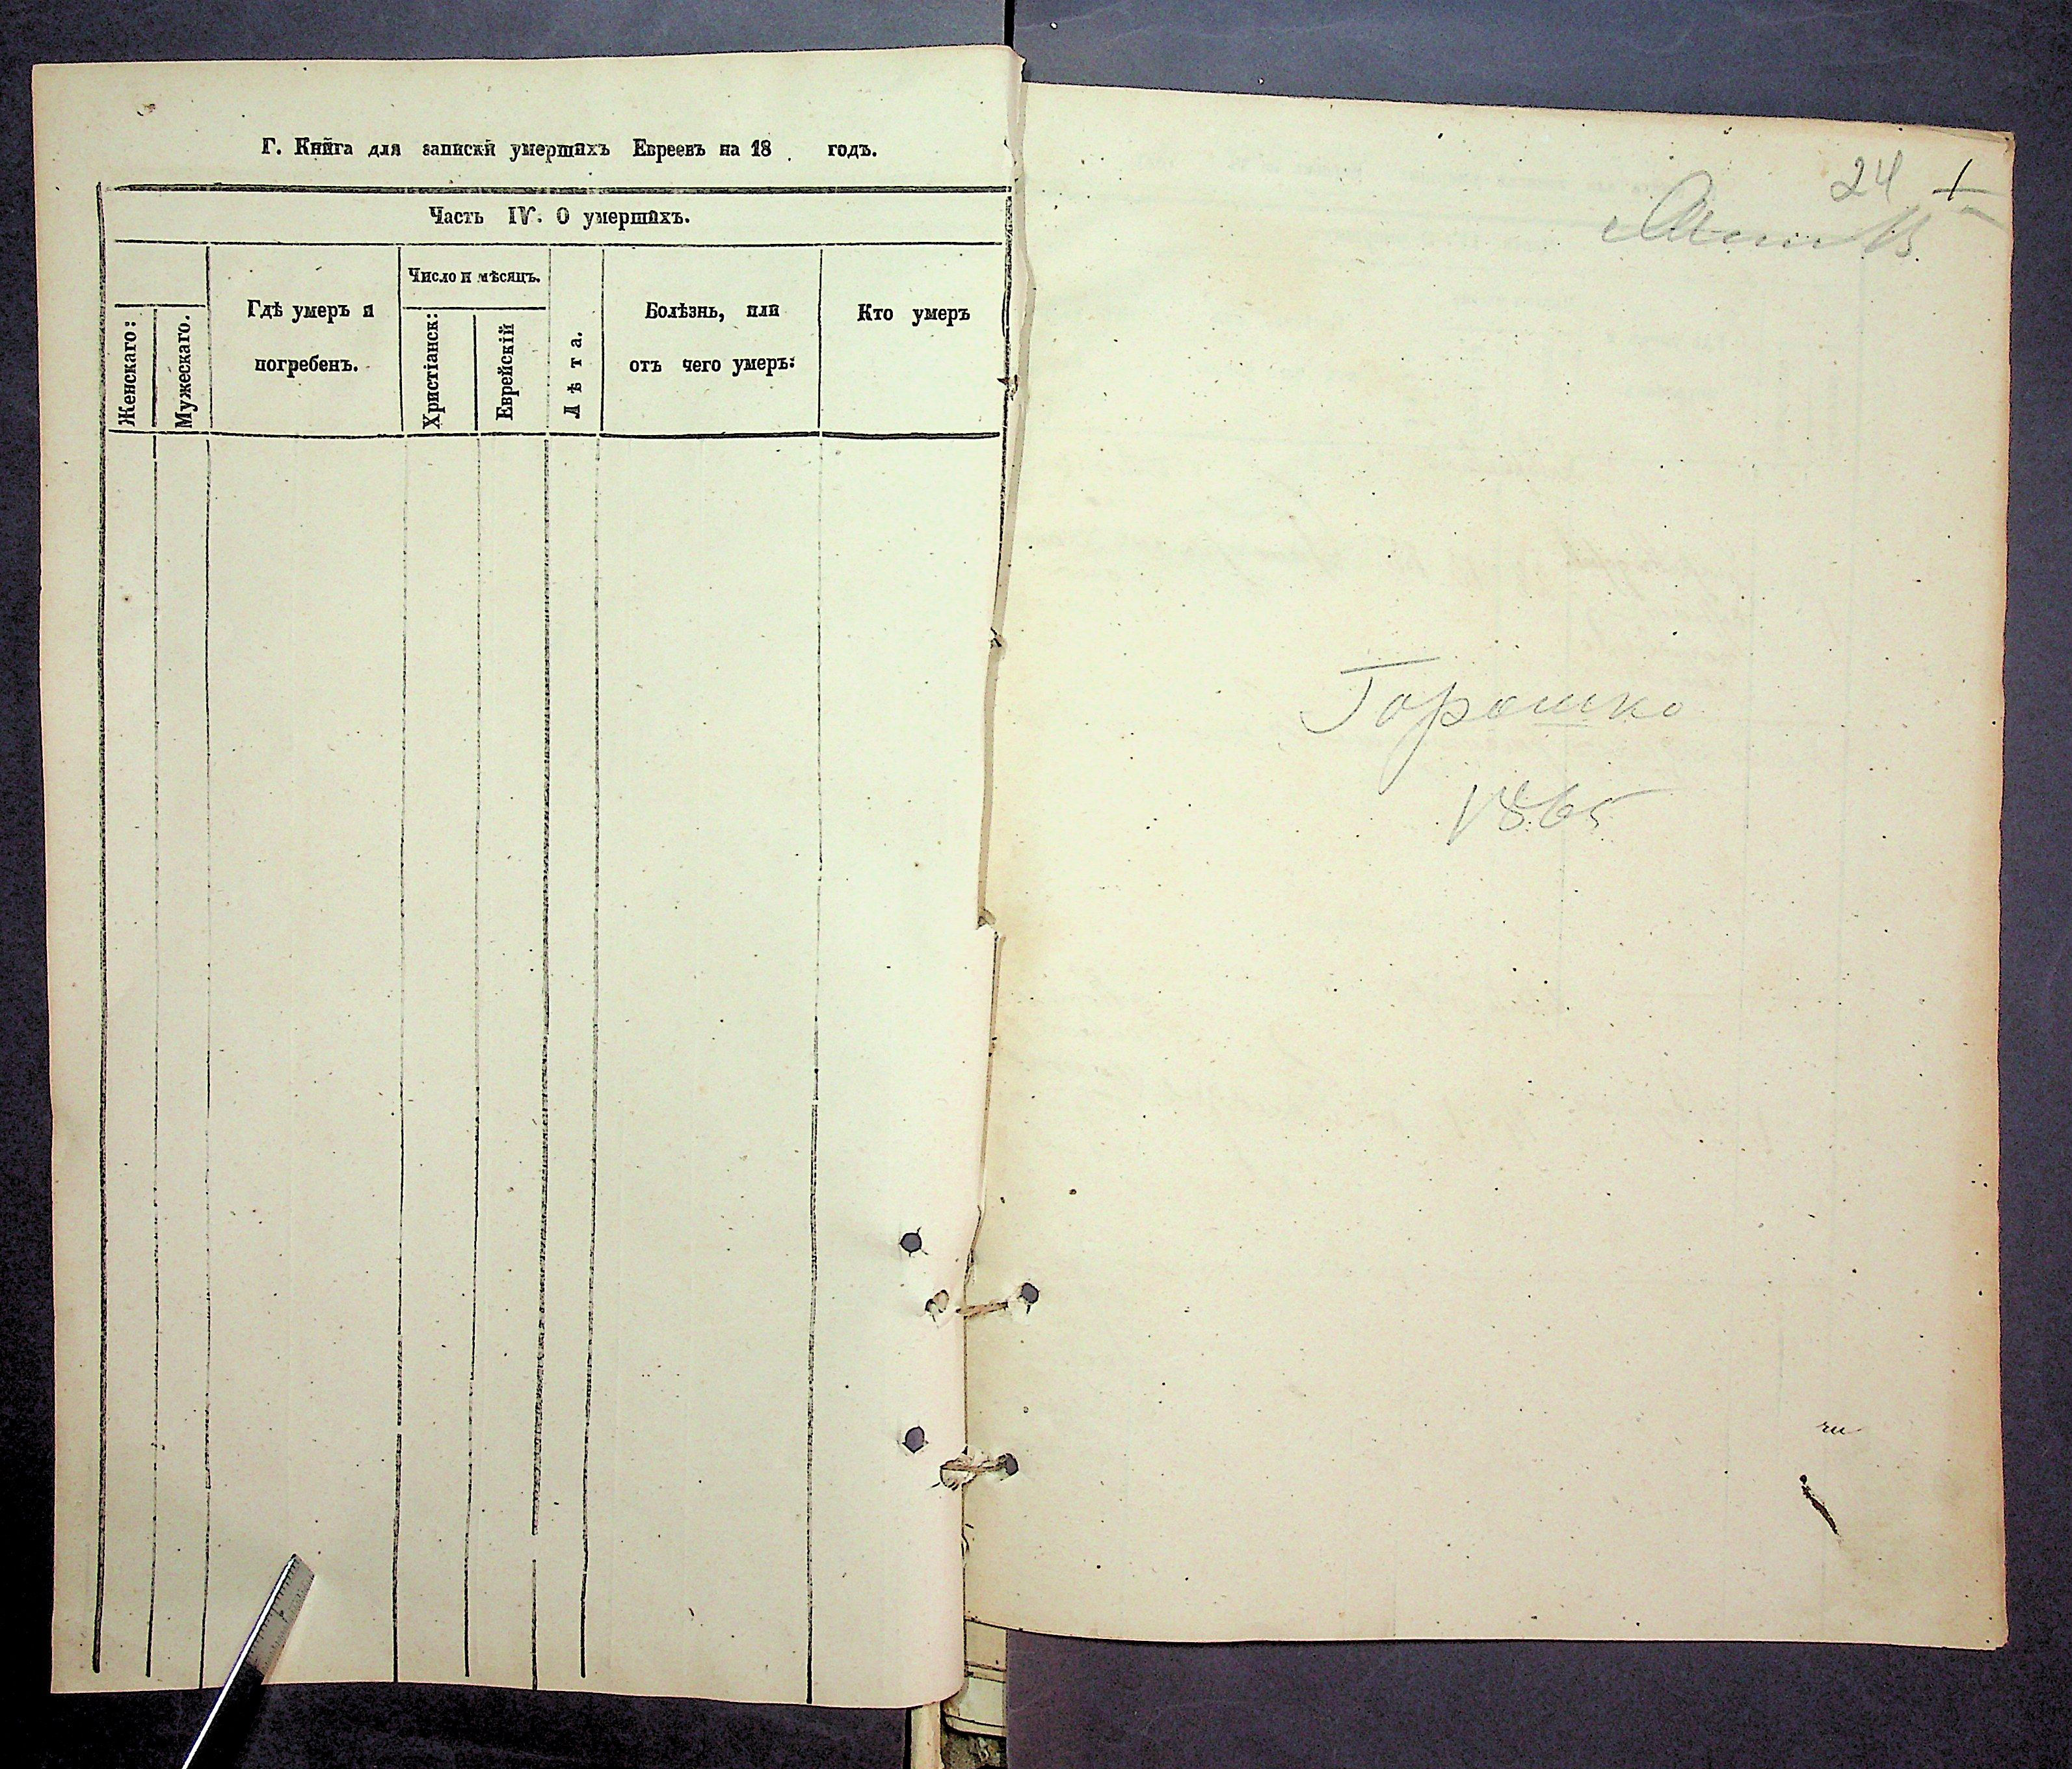 Г. Книга для записки умершихъ Евреевъ на 18 годъ.
Часть IV. О умершихъ.
Женскаго:
Мужескаго.
Гдѣ умеръ и
погребенъ.
Число и мѣсяцъ.
Христіанск:
Еврейскій
Лѣта.
Болѣзнь, или
отъ чего умеръ:
Кто умеръ
24 1
Горошко
1865